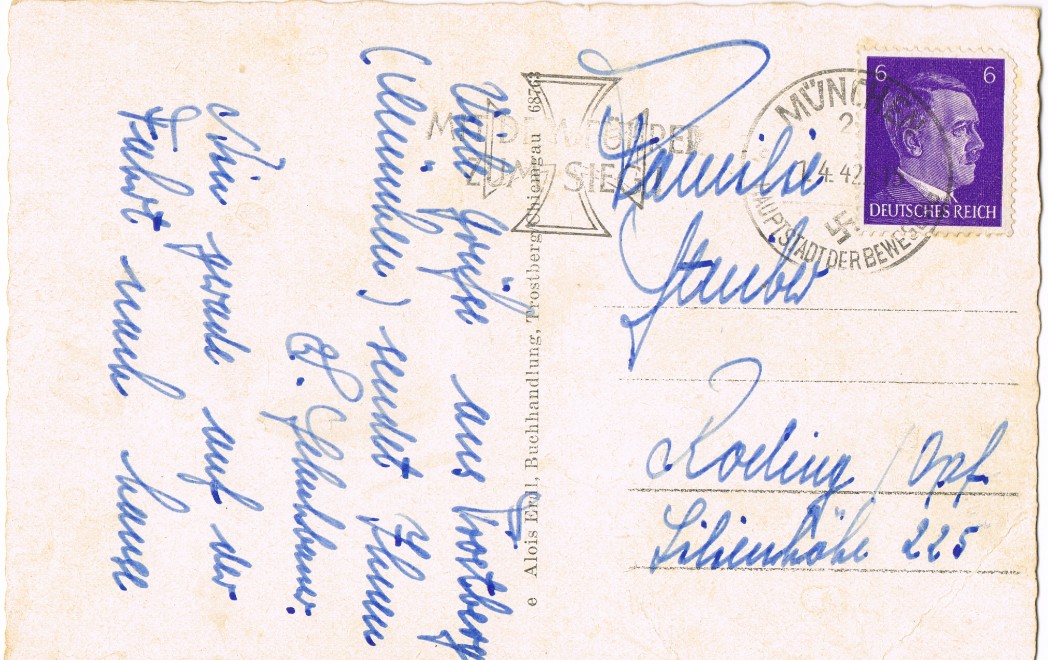 Viele Grüße aus Trostberg
(München) sendet Ihnen
Bin gerade auf der
Fahrt nach hause
e Alois Erdl, Buchhandlung, Trostberg/Chiemgau
MIT DEM FÜHRER
ZUM SIEG
MÜNCHEN
4.42
HAUPTSTADT DER BEWEGUNG
6 6
DEUTSCHES REICH
Familie
Stauber
Roding / Opf.
Lilienhöhe 225